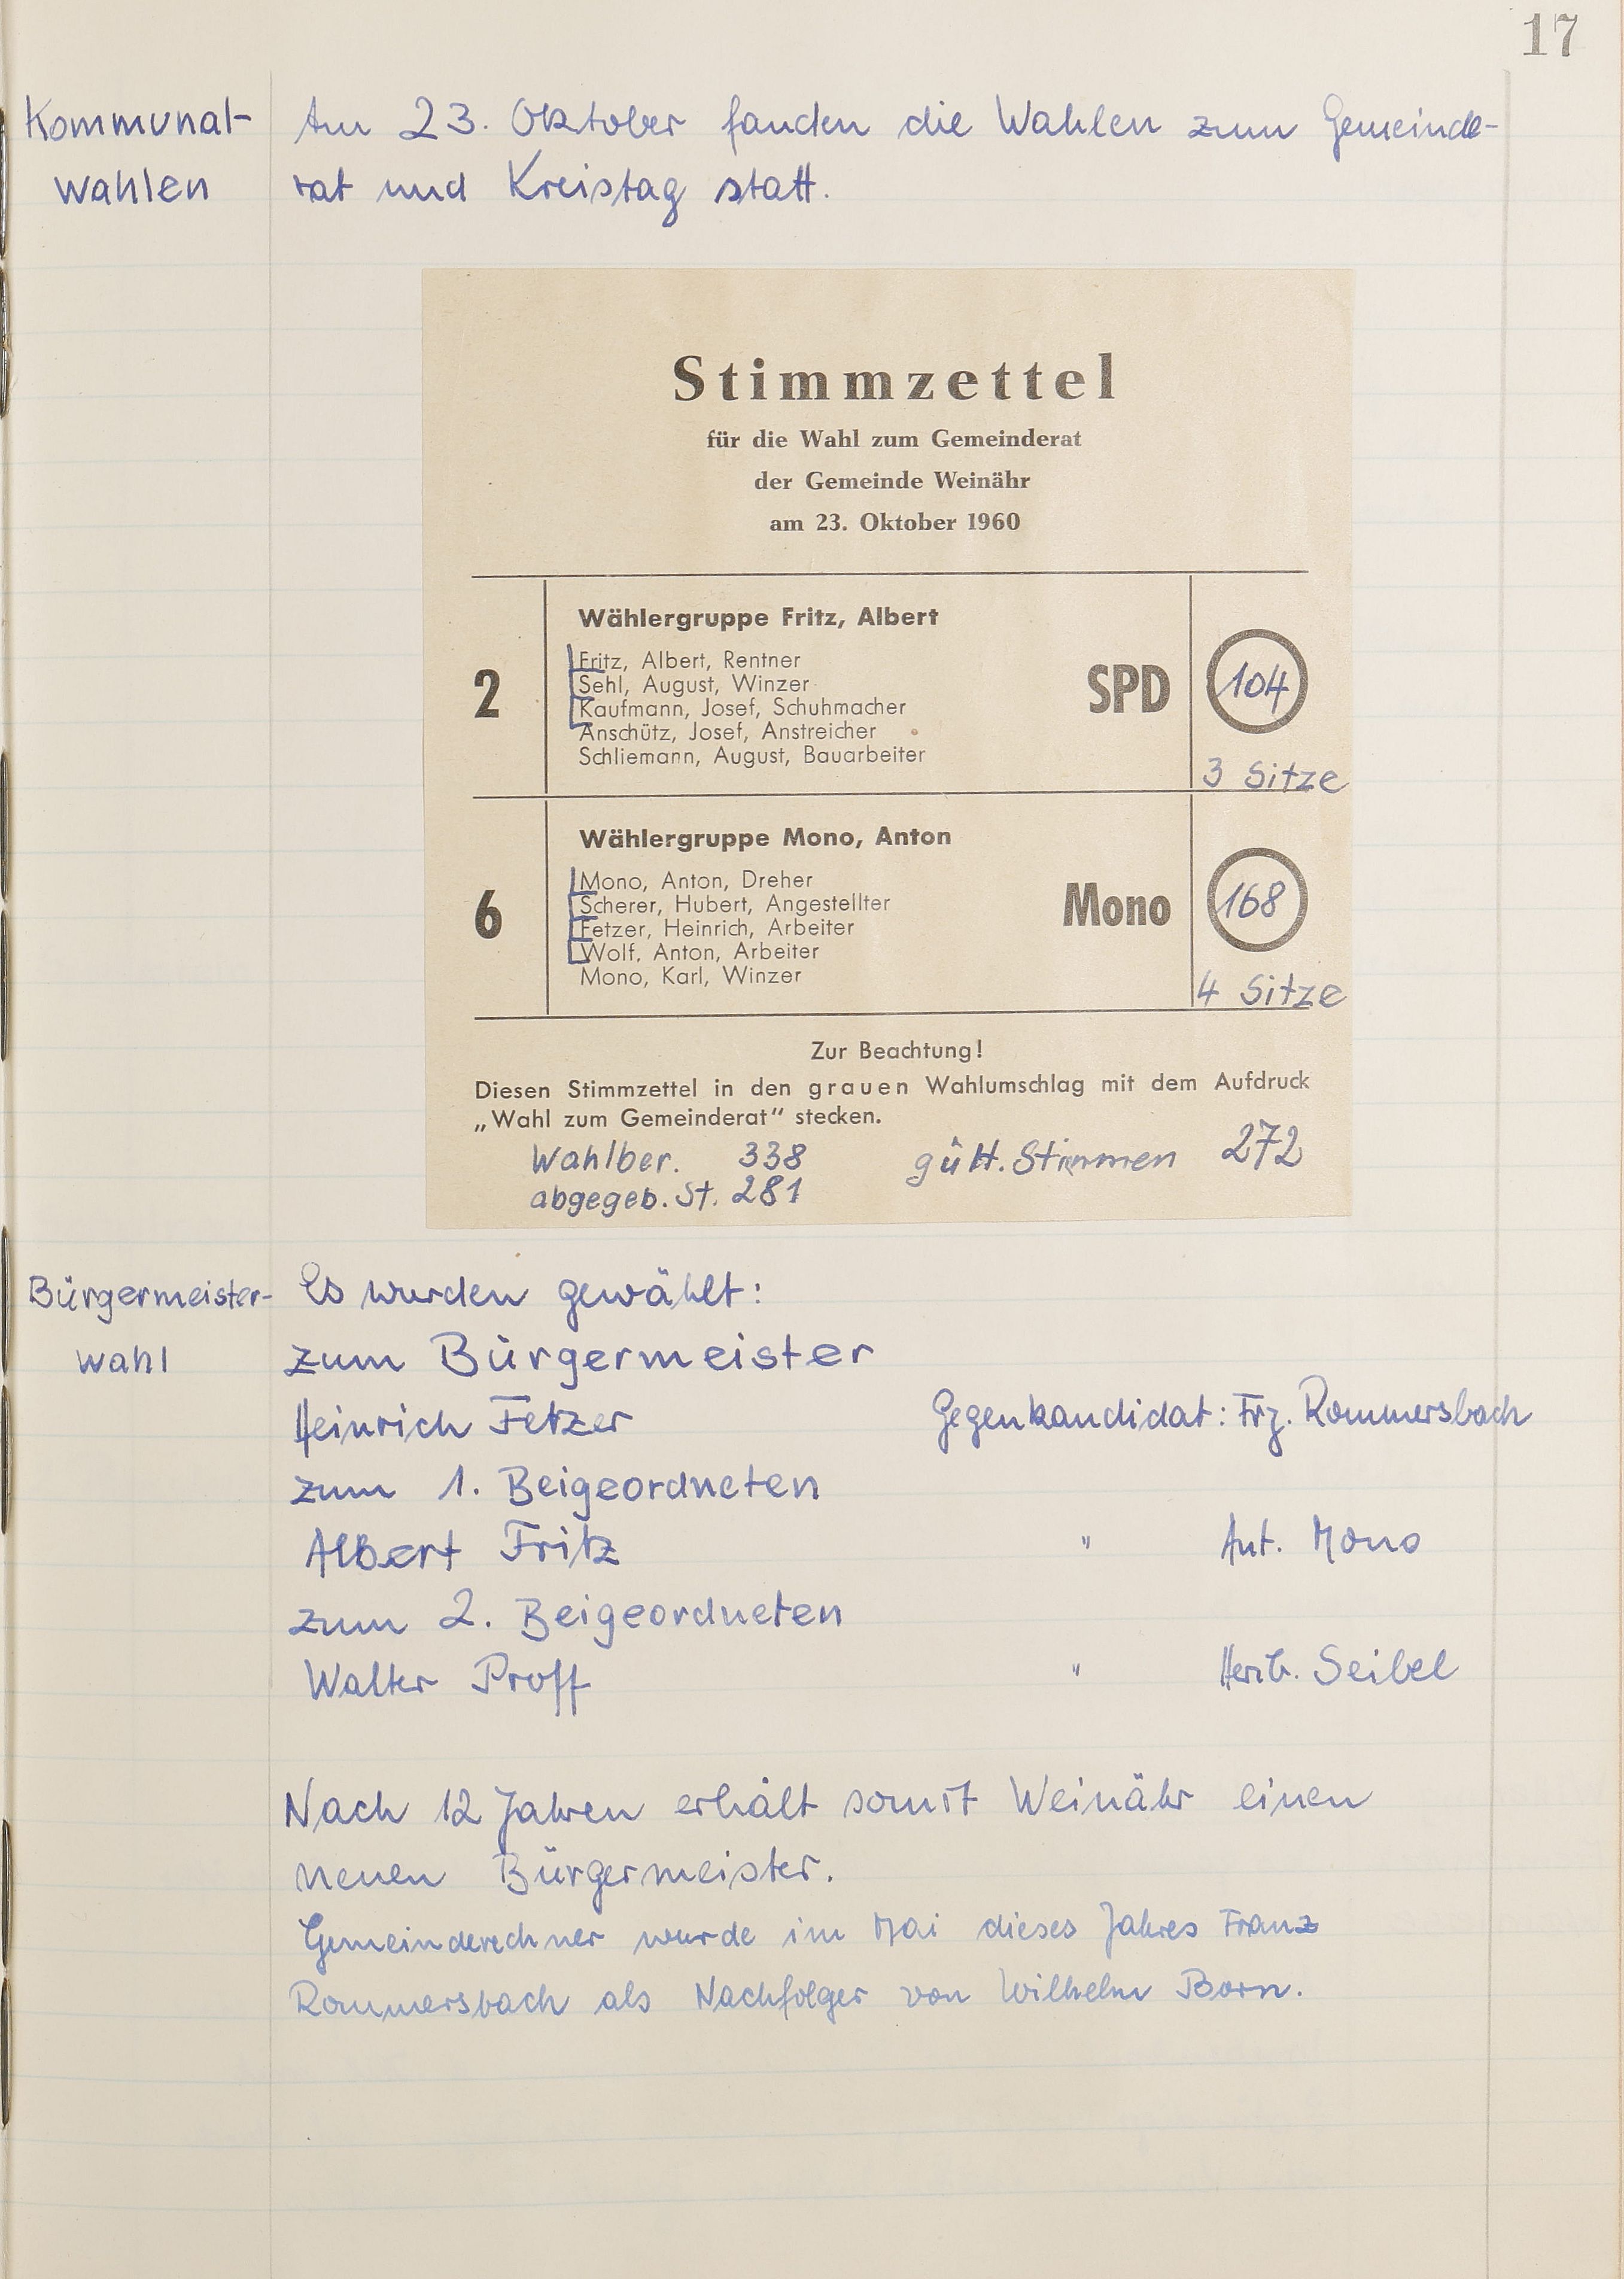 17
Kommunal-
wahlen
Am 23. Oktober fanden die Wahlen zum Gemeinde-
rat und Kreistag statt.
Stimmzettel
für die Wahl zum Gemeinderat
der Gemeinde Weinähr
am 23. Oktober 1960
2
Wählergruppe Fritz, Albert
Fritz, Albert, Rentner
Sehl, August, Winzer
Kaufmann, Josef, Schuhmacher
Anschütz, Josef, Anstreicher
Schliemann, August, Bauarbeiter
SPD
104
3 Sitze
6
Wählergruppe Mono, Anton
Mono, Anton, Dreher
Scherer, Hubert, Angestellter
Fetzer, Heinrich, Arbeiter
Wolf, Anton, Arbeiter
Mono, Karl, Winzer
Mono
168
4 Sitze
Zur Beachtung!
Diesen Stimmzettel in den grauen Wahlumschlag mit dem Aufdruck
„Wahl zum Gemeinderat“ stecken.
Wahlber. 338 gült. Stimmen 272
abgegeb. St. 281
Bürgermeister-
wahl
Es wurden gewählt:
zum Bürgermeister
Heinrich Fetzer Gegenkandidat: Frz. Rommersbach
zum 1. Beigeordneten
Albert Fritz " Ant. Mono
zum 2. Beigeordneten
Walter Proff " Herib. Seibel
Nach 12 Jahren erhält somit Weinähr einen
neuen Bürgermeister.
Gemeinderechner wurde im Mai dieses Jahres Franz
Rommersbach als Nachfolger von Wilhelm Born.